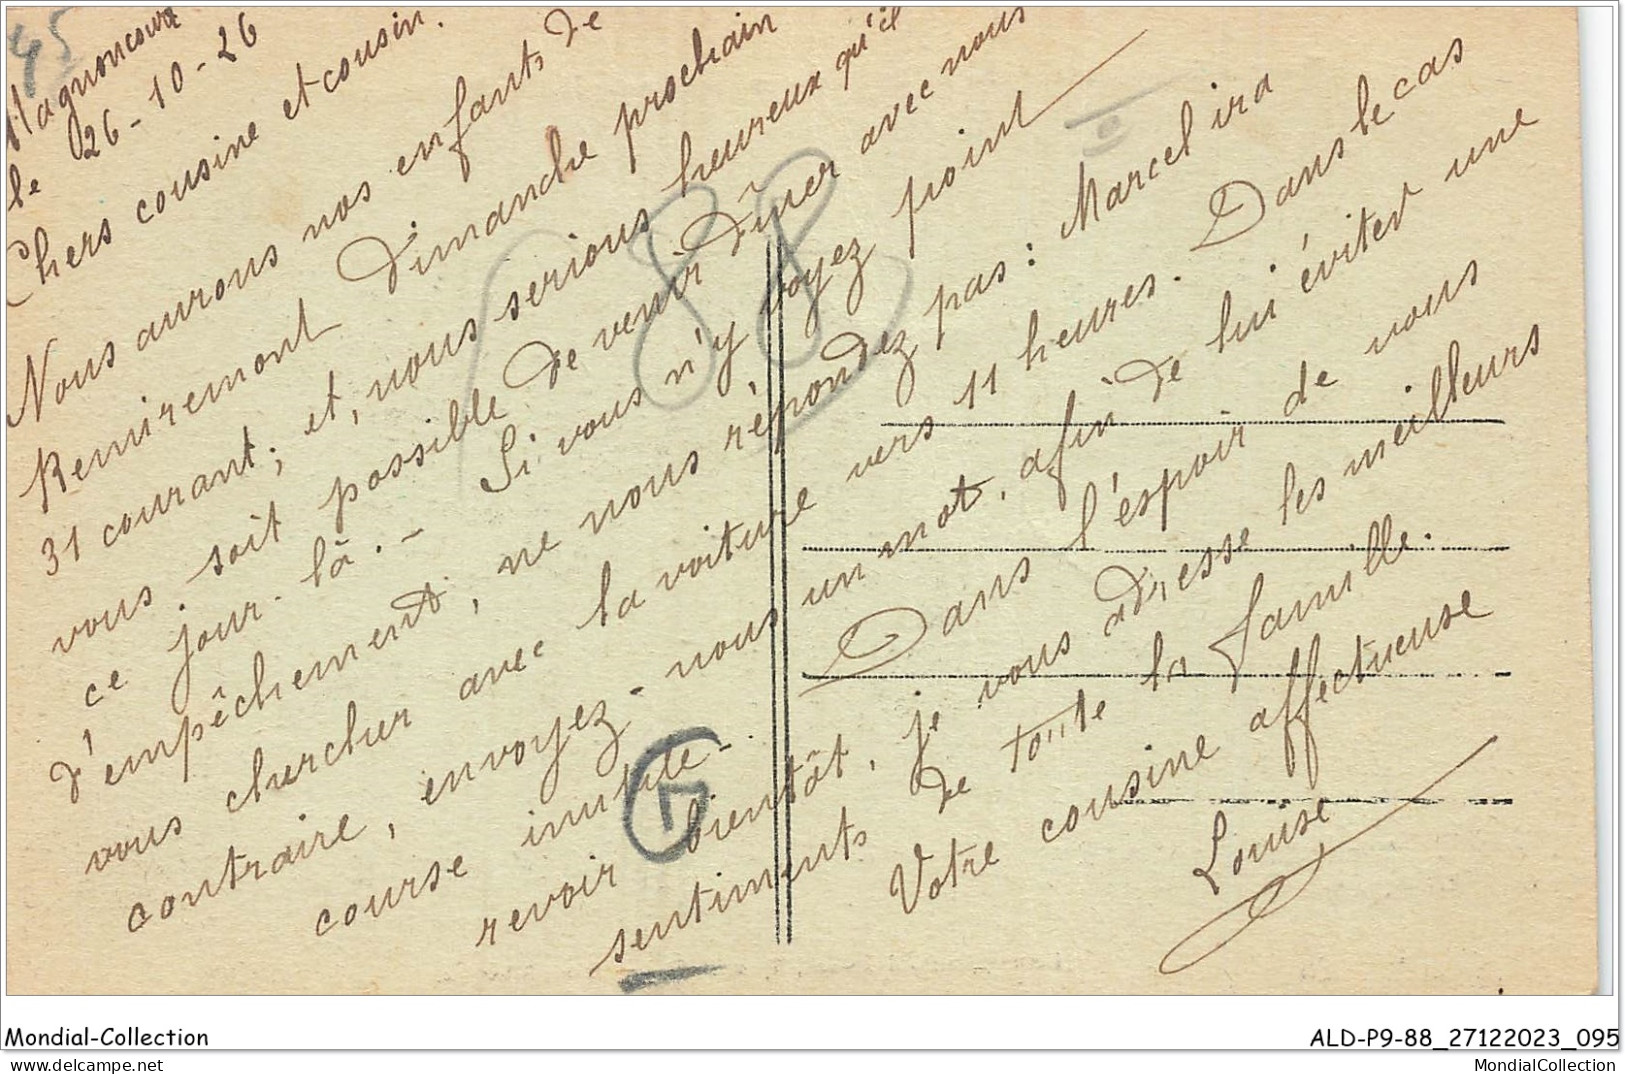 45
Magnoncourt
le 26-10-26
Chers cousine et cousin.
Nous aurons nos enfants de
Remiremont Dimanche prochain
31 courant; et, nous serions heureux qu'il
vous soit possible de venir dîner avec nous
ce jour-là.- Si vous n'y voyez point
d'empêchement, ne nous répondez pas: Marcel ira
vous chercher avec la voiture vers 11 heures. Dans le cas
contraire, envoyez-nous un mot, afin de lui éviter une
course inutile-
Dans l'espoir de vous
revoir bientôt, je vous adresse les meilleurs
sentiments de toute la famille.
Votre cousine affectueuse
Louise
88
Mondial-Collection
ALD-P9-88_27122023_095
www.delcampe.net
MondialCollection